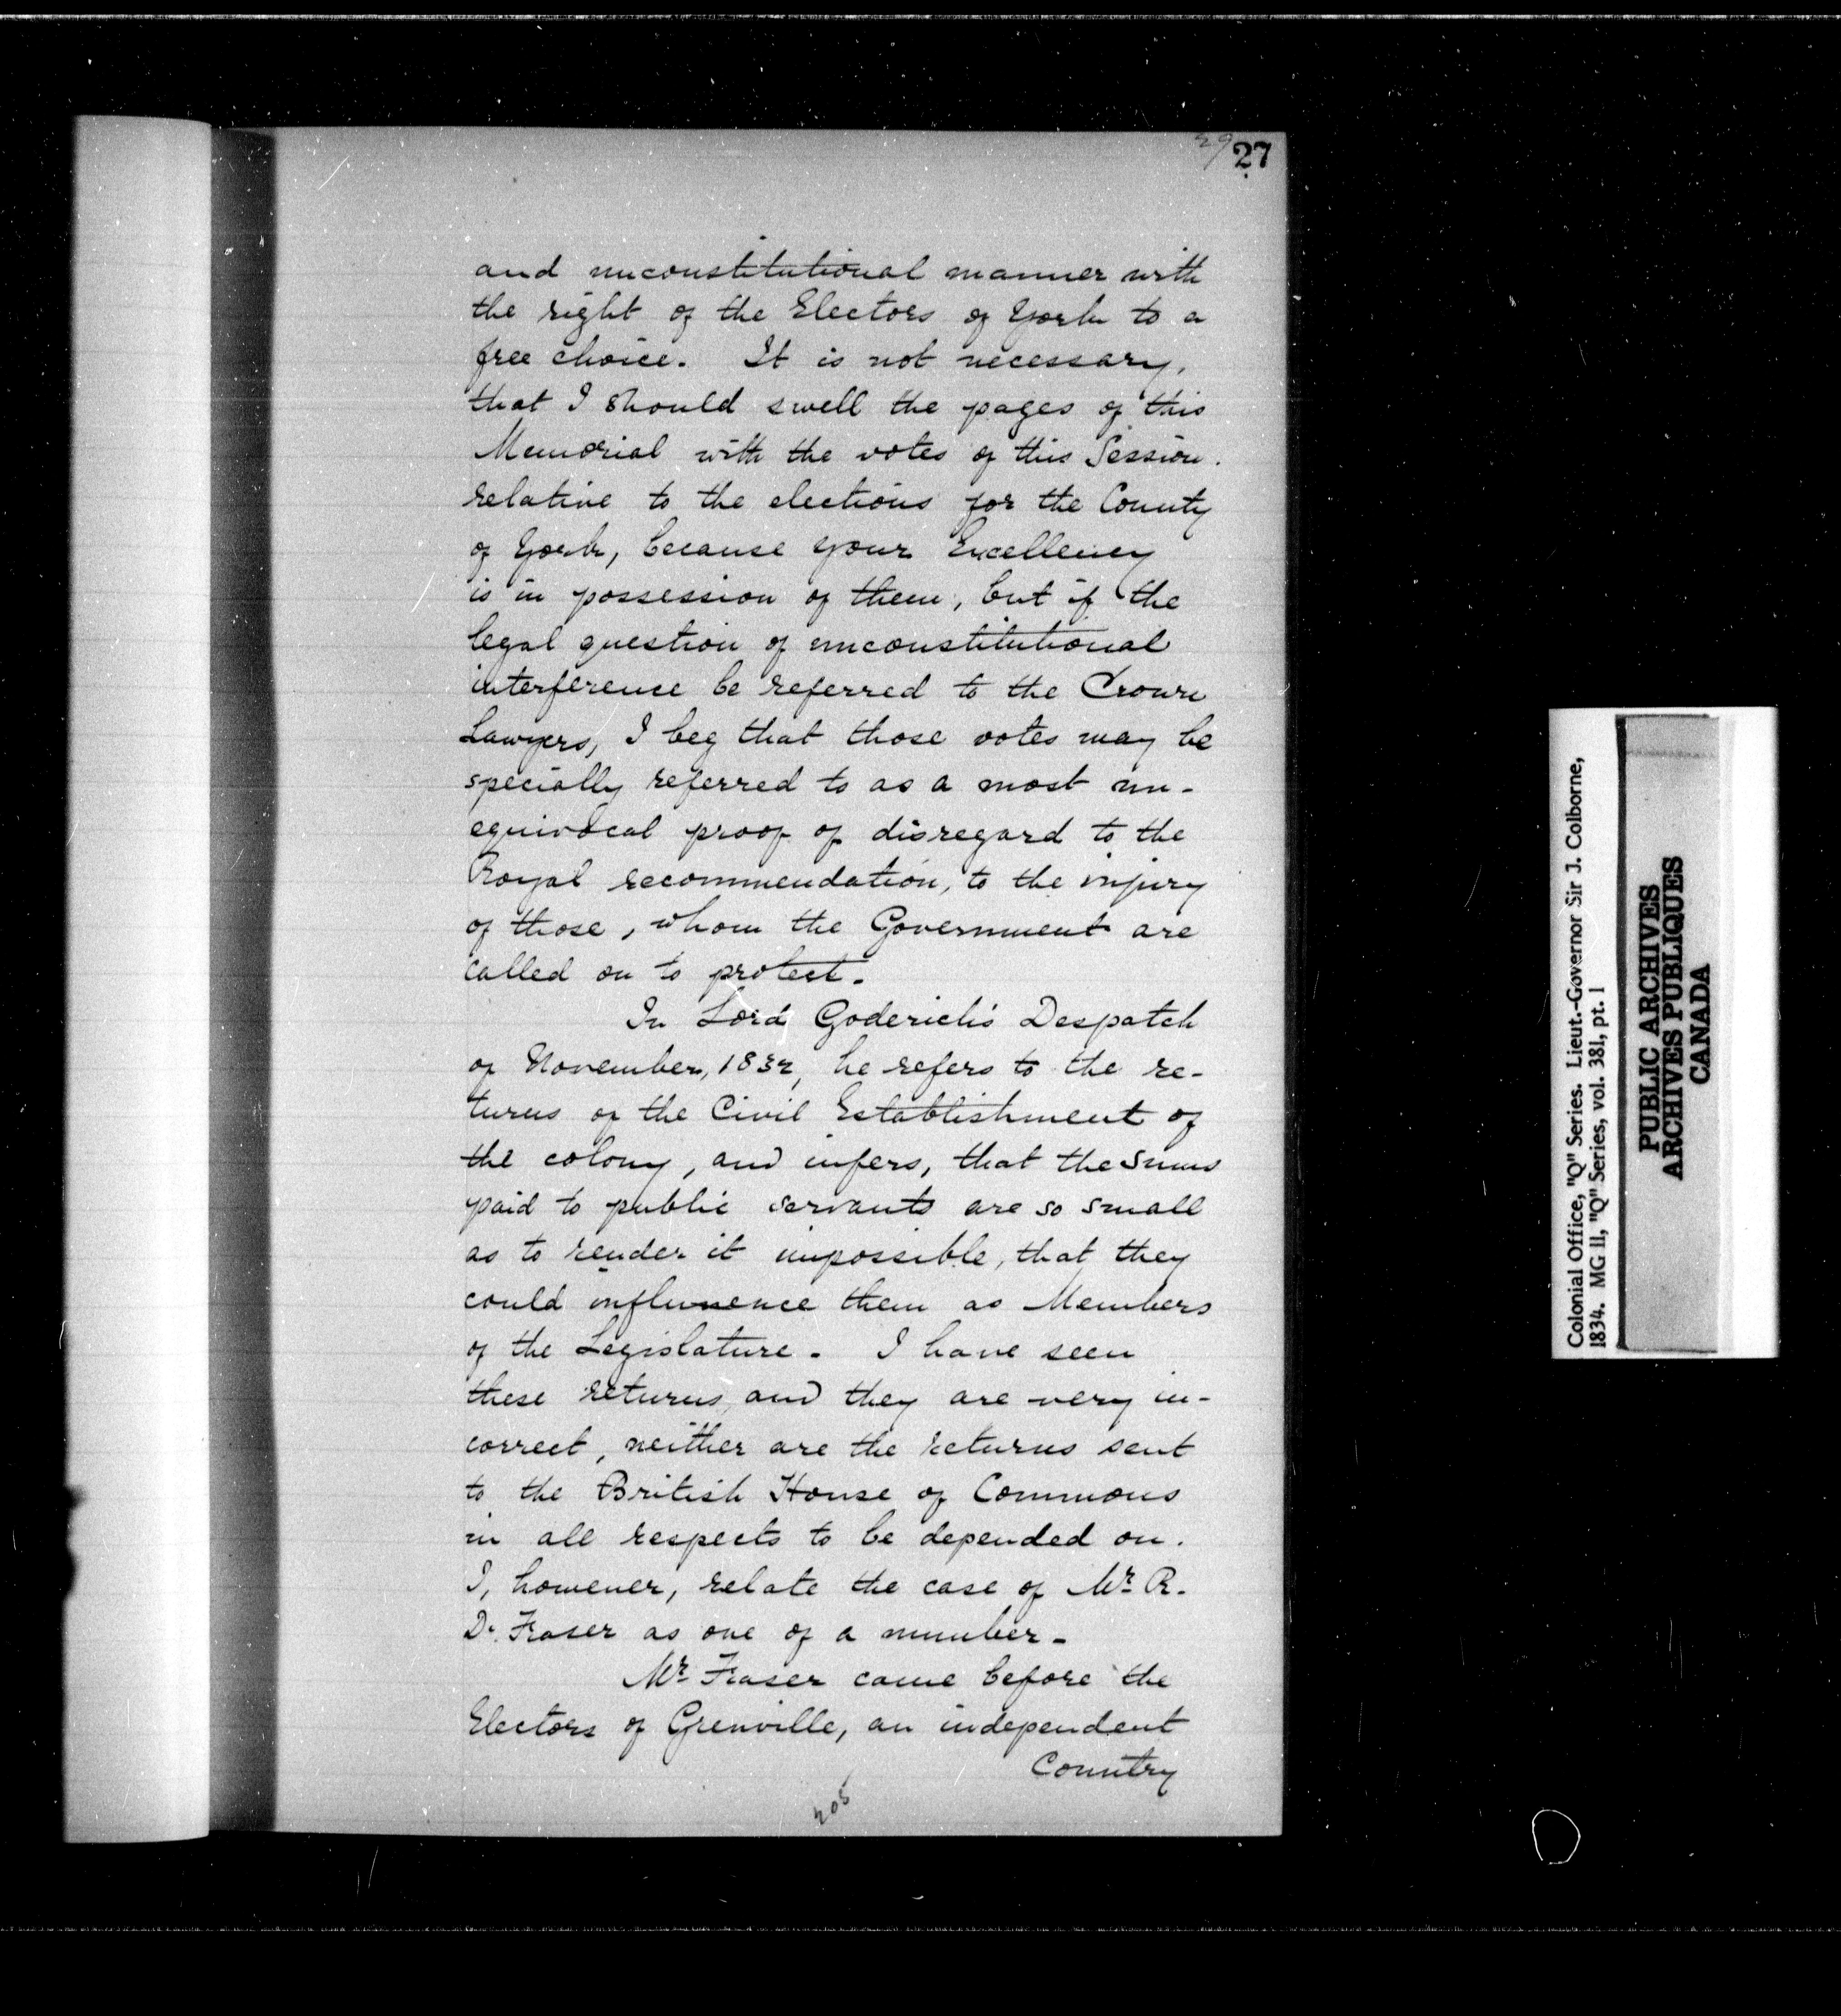 29 27
and unconstitutional manner with
the right of the Electors of York to a
free choice. It is not necessary,
that I should swell the pages of this
Memorial with the votes of this Session.
relative to the elections for the County
of York, because your Excellency
is in possession of them, but if the
legal question of unconstitutional
interference be referred to the Crown
Lawyers, I beg that those votes may be
specially referred to as a most un-
equivocal proof of disregard to the
Royal recommendation, to the injury
of those, whom the Government are
called on to protect.
In Lord Goderich's Despatch
of November, 1832, he refers to the re-
turns of the Civil Establishment of
the colony, and infers, that the sums
paid to public servants are so small
as to render it impossible, that they
could influence them as Members
of the Legislature. I have seen
these returns, and they are very in-
correct, neither are the returns sent
to the British House of Commons
in all respects to be depended on.
I, however, relate the case of Mr. R.
D. Fraser as one of a number.
Mr. Fraser came before the
Electors of Grenville, an independent
Country
208
Colonial Office, "Q" Series. Lieut.-Governor Sir J. Colborne,
1834. MG 11, "Q" Series, vol. 381, pt. 1
PUBLIC ARCHIVES
ARCHIVES PUBLIQUES
CANADA